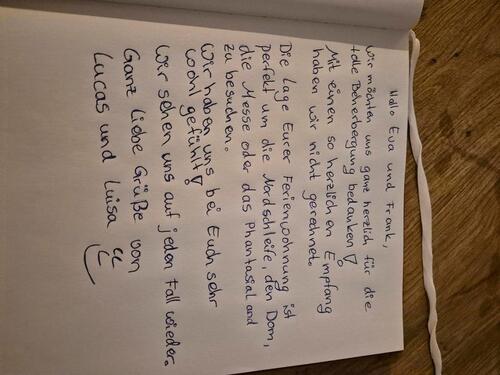 Hallo Eva und Frank,
wir möchten uns ganz herzlich für die
tolle Beherbergung bedanken!
Mit einen so herzlichen Empfang
haben wir nicht gerechnet.
Die Lage Eurer Ferienwohnung ist
perfekt um die Nordschleife, den Dom,
die Messe oder das Phantasialand
zu besuchen.
Wir haben uns bei Euch sehr
wohl gefühlt!
Wir sehen uns auf jeden Fall wieder.
Ganz liebe Grüße von
Lucas und Luisa